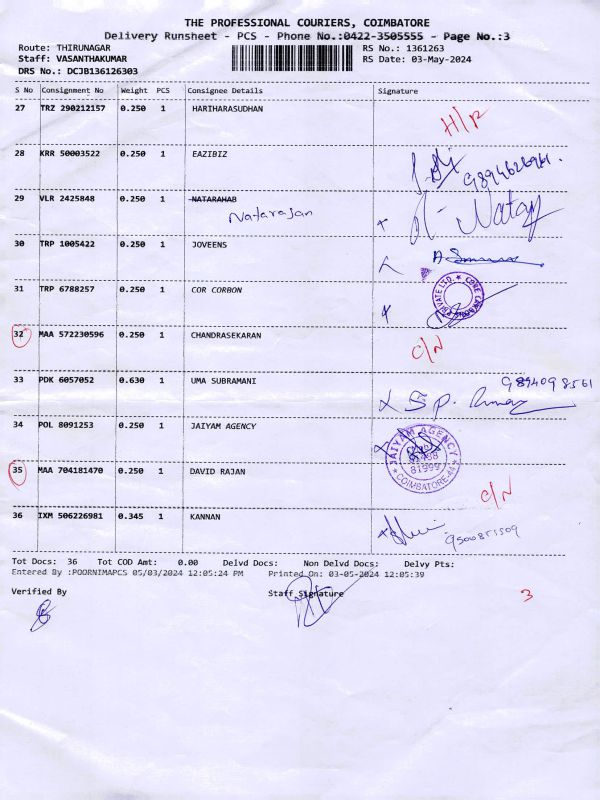 THE PROFESSIONAL COURIERS, COIMBATORE
Delivery Runsheet - PCS - Phone No.:0422-3505555 - Page No.:3
Route: THIRUNAGAR RS No.: 1361263
Staff: VASANTHAKUMAR RS Date: 03-May-2024
DRS No.: DCJB136126303
S No Consignment No Weight PCS Consignee Details Signature
27 TRZ 290212157 0.250 1 HARIHARASUDHAN
28 KRR 50003522 0.250 1 EAZIBIZ
29 VLR 2425848 0.250 1 NATARAHAB
Natarajan
30 TRP 1005422 0.250 1 JOVEENS
31 TRP 6788257 0.250 1 COR CORBON
32 MAA 572230596 0.250 1 CHANDRASEKARAN C/N
33 PDK 6057052 0.630 1 UMA SUBRAMANI
34 POL 8091253 0.250 1 JAIYAM AGENCY JAIYAM AGENCY COIMBATORE-44
35 MAA 704181470 0.250 1 DAVID RAJAN C/N
36 IXM 506226981 0.345 1 KANNAN
Tot Docs: 36 Tot COD Amt: 0.00 Delvd Docs: Non Delvd Docs: Delvy Pts:
Entered By :POORNIMAPCS 05/03/2024 12:05:24 PM Printed On: 03-05-2024 12:05:39
Verified By Staff Signature
3